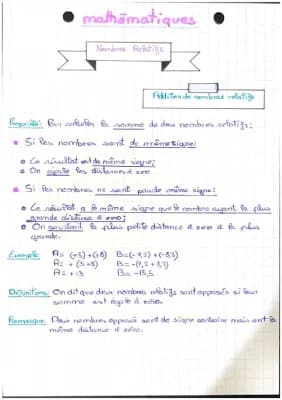 mathématiques
Nombres Relatifs
Addition de nombres relatifs
Propriété: Pour calculer la somme de deux nombres relatifs:
Si les nombres sont de même signe:
Le résultat est de même signe;
On ajoute les distances à zéro
Si les nombres ne sont pas de même signe:
Le résultat a le même signe que le nombre ayant la plus
grande distance à zéro;
On soustrait la plus petite distance à zéro à la plus
grande.
Exemple: A= (+5)+(+8) B=(-7,2)+(-8,3)
A= + (5+8) B= -(7,2+8,3)
A= + 13 B= -15,5
Définition: On dit que deux nombres relatifs sont opposés si leur
somme est égale à zéro.
Remarque: Deux nombres opposés sont de signe contraire mais ont la
même distance à zéro.